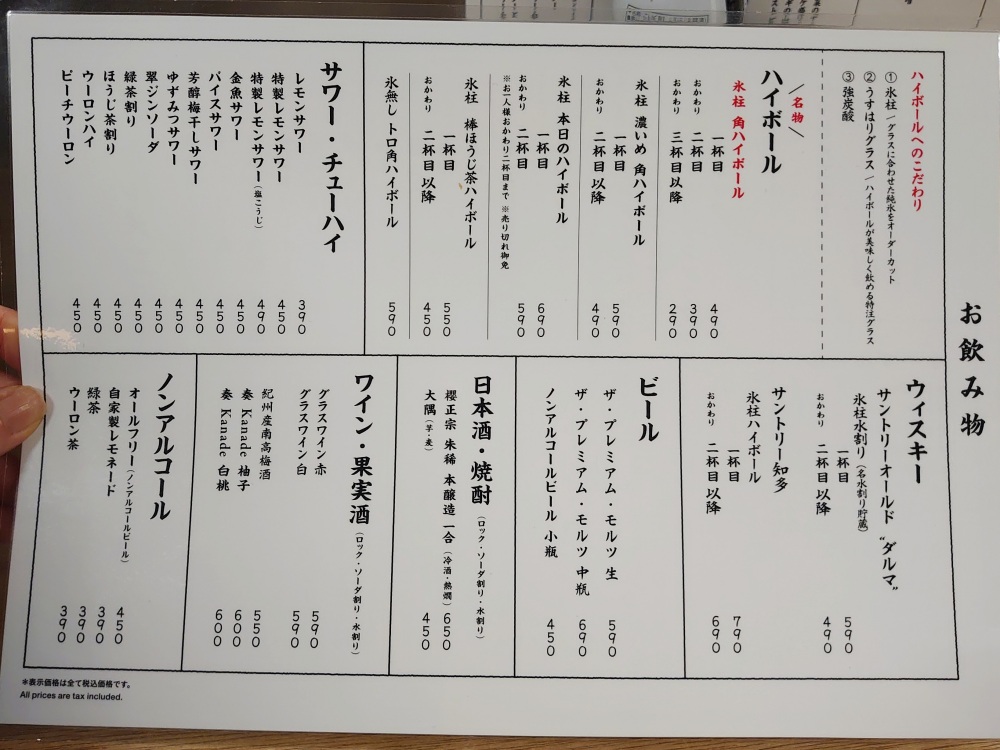 お飲み物
ハイボールへのこだわり
① 氷柱／グラスに合わせた純氷をオーダーカット
② うすはりグラス／ハイボールが美味しく飲める特注グラス
③ 強炭酸
＼名物／
ハイボール
氷柱 角ハイボール
一杯目 490
おかわり 二杯目 390
おかわり 三杯目以降 290
氷柱 濃いめ 角ハイボール
一杯目 590
おかわり 二杯目以降 490
氷柱 本日のハイボール
一杯目 690
おかわり 二杯目 590
※お一人様おかわり二杯目まで ※売り切れ御免
氷柱 棒ほうじ茶ハイボール
一杯目 550
おかわり 二杯目以降 450
氷無し トロ角ハイボール 590
サワー・チューハイ
レモンサワー 390
特製レモンサワー 450
特製レモンサワー（塩こうじ） 490
金魚サワー 450
バイスサワー 450
芳醇梅干しサワー 450
ゆずみつサワー 450
翠ジンソーダ 450
緑茶割り 450
ほうじ茶割り 450
ウーロンハイ 450
ピーチウーロン 450
ウィスキー
サントリーオールド “ダルマ”
氷柱水割り（名水割り貯蔵）
一杯目 590
おかわり 二杯目以降 490
サントリー知多
氷柱ハイボール
一杯目 790
おかわり 二杯目以降 690
ビール
ザ・プレミアム・モルツ 生 590
ザ・プレミアム・モルツ 中瓶 690
ノンアルコールビール 小瓶 450
日本酒・焼酎（ロック・ソーダ割り・水割り）
櫻正宗 朱稀 本醸造 一合（冷酒・熱燗） 650
大隅（芋・麦） 450
ワイン・果実酒（ロック・ソーダ割り・水割り）
グラスワイン 赤 590
グラスワイン 白 590
紀州産南高梅酒 550
奏 Kanade 柚子 600
奏 Kanade 白桃 600
ノンアルコール
オールフリー（ノンアルコールビール） 450
自家製レモネード 390
緑茶 390
ウーロン茶 390
＊表示価格は全て税込価格です。
All prices are tax included.